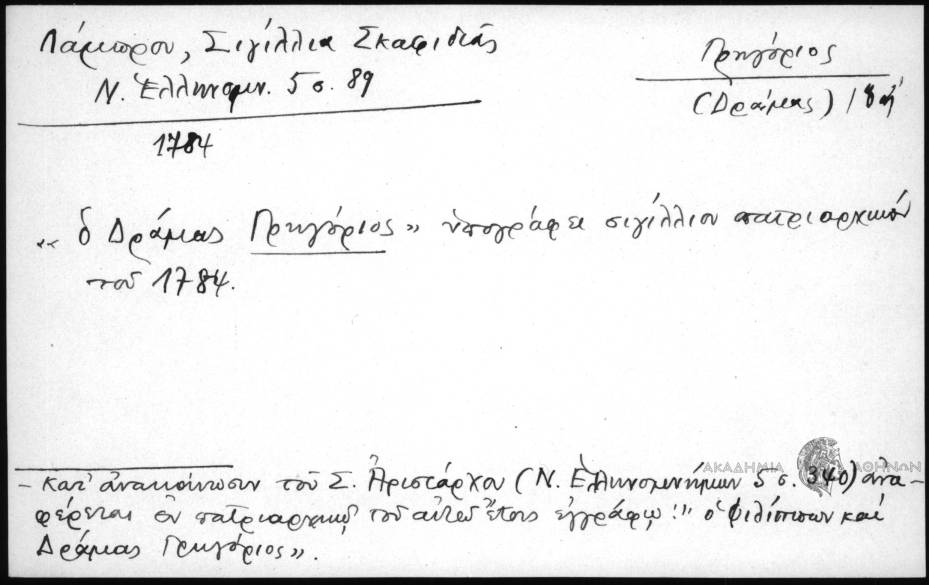 Λάμπρου, Σιγίλλια Σκαφιδιᾶς
Ν. Ἑλληνομν. 5 σ. 89
1784
Γρηγόριος
(Δράμας) 18 αἰ
«ὁ Δράμας Γρηγόριος» ὑπογράφει σιγίλλιον πατριαρχικόν
τοῦ 1784.
- Κατ' ἀνακοίνωσιν τοῦ Σ. Ἀριστάρχου (Ν. Ἑλληνομνήμων 5 σ. 340) ἀνα-
φέρεται ἐν πατριαρχικῷ τοῦ αὐτοῦ ἔτους ἐγγράφῳ: "ὁ Φιλίππων καὶ
Δράμας Γρηγόριος».
ΑΚΑΔΗΜΙΑ ΑΘΗΝΩΝ